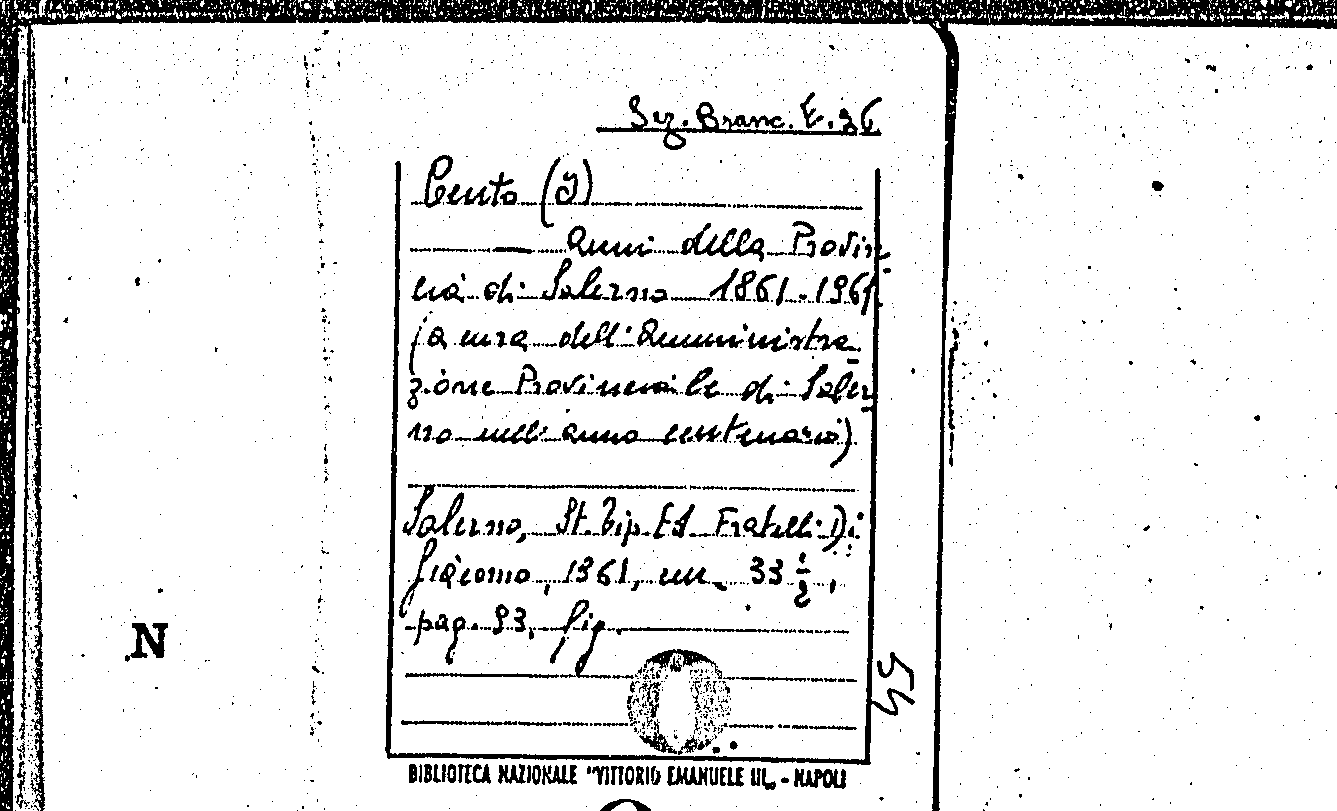 Sez. Branc. E. 36
Cento (I)
— anni della Provin-
cia di Salerno 1861-1961.
(a cura dell'Amministra-
zione Provinciale di Saler-
no nell'anno centenario)
Salerno, St. Tip. Ed. Fratelli Di
Giacomo, 1961, cm. 33 1/2,
pag. 93, fig.
N
54
BIBLIOTECA NAZIONALE "VITTORIO EMANUELE III„ - NAPOLI